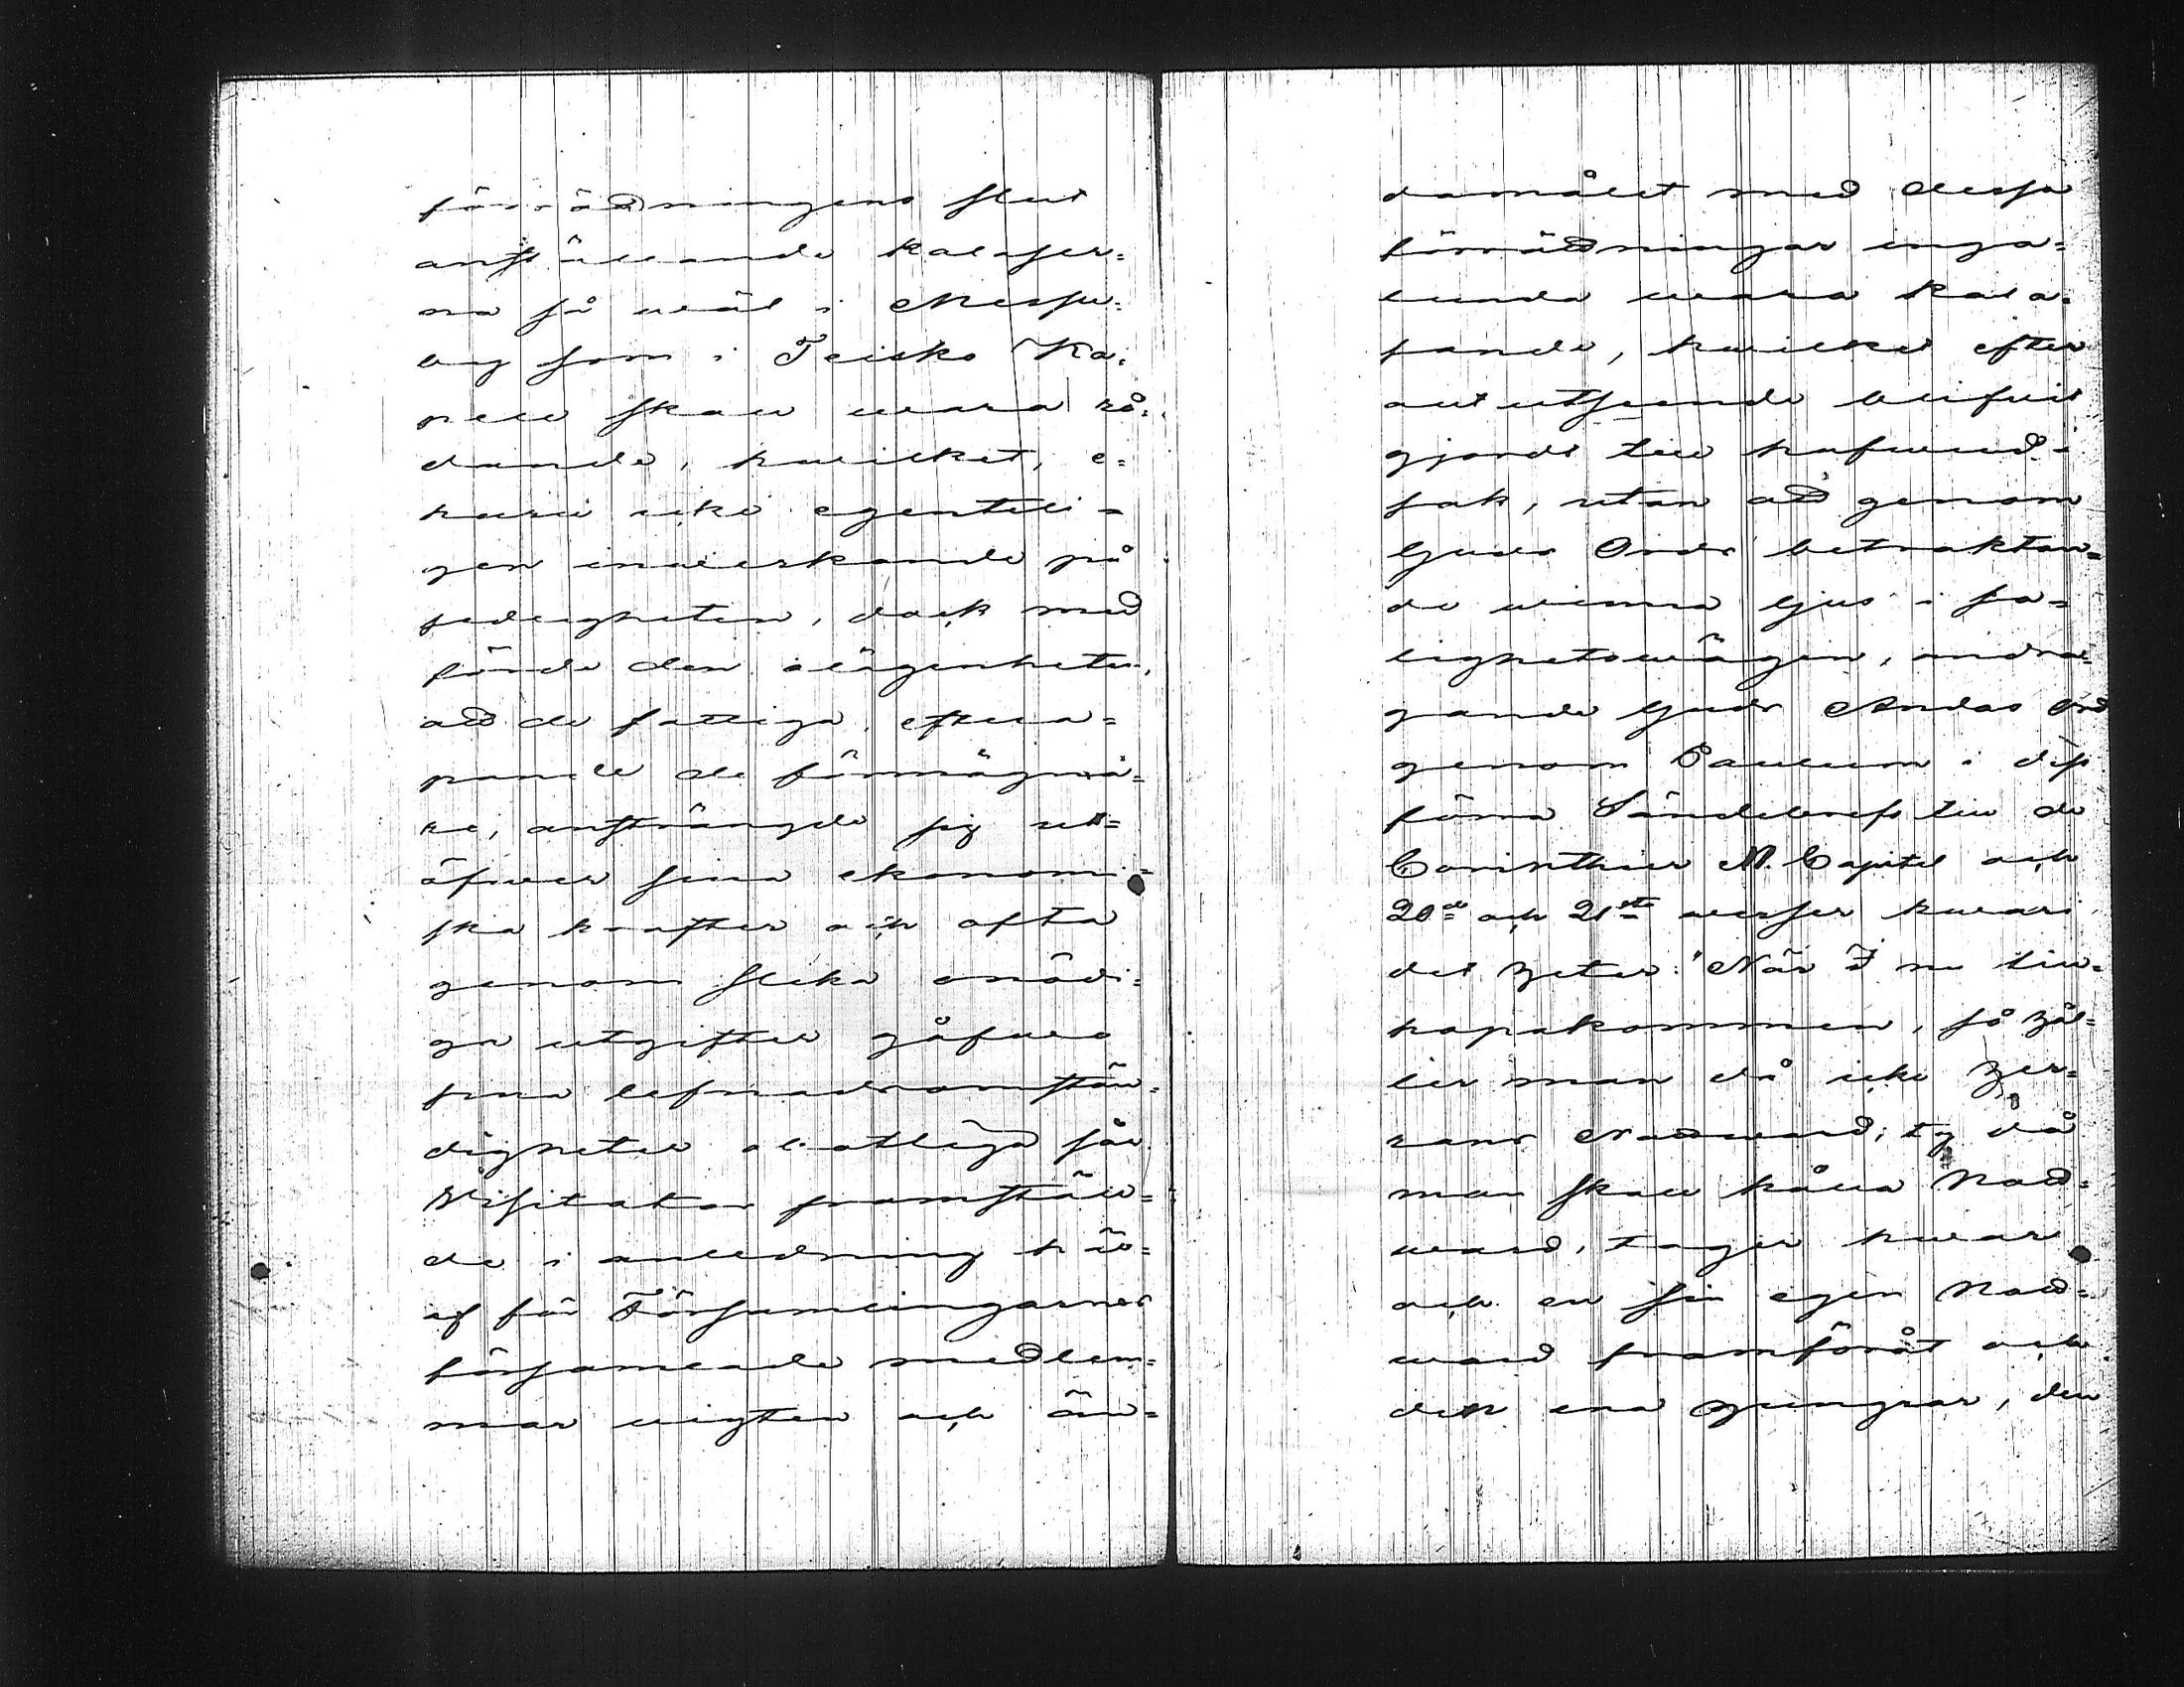 förrädningens slut
anställande kalaser=
na så wäl i Messu=
by som i Teisko Ka=
pell skall wara rå=
dande, hwilket, e=
huru icke egenteli=
gen inwerkande på
sedligheten, dock med
förde den olägenheten,
att de fattiga, efterа=
pande de förmögna=
re, ansträngde sig ut=
öfwer sina ekonomi=
ska krafter och ofta
genom slika onödi=
ga utgifter gåfwo
sina lefnadsomstän=
digheter obotliga sår.
Visitator framstäl=
de i anledning här=
af för Församlingarnes
församlade medlem=
mar wigten och än=
damålet med dessa
förrädningar inga=
lunda wara kala=
sande, hwilket efter
allt utseende blifwit
gjordt till hufwud=
sak, utan att genom
Guds Ords betraktan=
de winna ljus i sa=
lighetswägen, andra=
gande Guds Andas ord
genom Paulum i dess
förra Sändebref till de
Corinthier 11. Capitel och
20de och 21sta verser hwari
det heter: "När I nu till=
hopakommen, så hål=
ler man då icke Her=
rans Nattward; ty då
man skall hålla Natt=
ward, tager hwar
och en sin egen Natt=
ward framföråt och
den ena hungrar, den